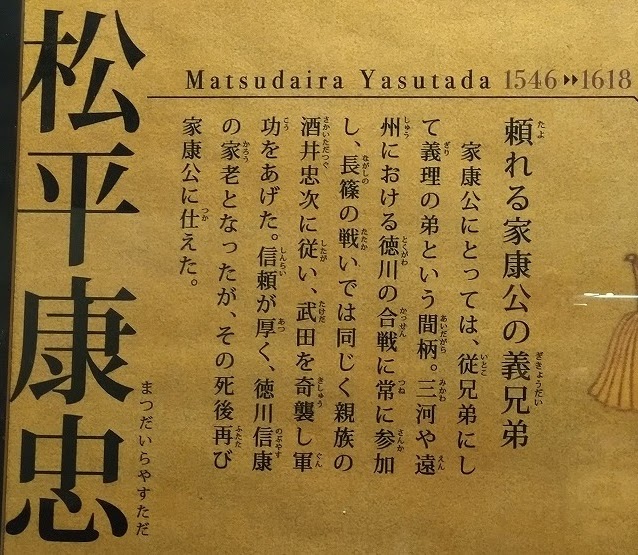 Matsudaira Yasutada 1546 ▸▸ 1618
頼れる家康公の義兄弟
家康公にとっては、従兄弟にし
て義理の弟という間柄。三河や遠
州における徳川の合戦に常に参加
し、長篠の戦いでは同じく親族の
酒井忠次に従い、武田を奇襲し軍
功をあげた。信頼が厚く、徳川信康
の家老となったが、その死後再び
家康公に仕えた。
松平康忠
まつだいらやすただ